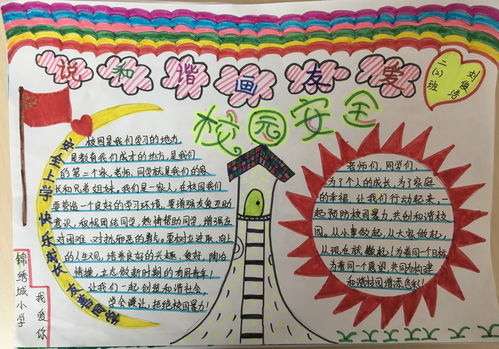 说和谐画友善
二(2)班
刘俊浩
校园安全
安全上学 快乐成长
校园是我们学习的地方,
是教育我们成才的地方,是我们
的第二个家,老师、同学就是我们的家
长和兄弟姐妹,我们是一家人,在校园我们
要营造一个良好的学习环境,要增强友爱互助
意识,和校团结同学,热情帮助同学,增强在
对困难、对挫折足的勇气,要树立进取、向上
的人生观,培养良好的兴趣、爱好,陶冶
情操,立志做新时期的有用青年,
让我们一起创想和谐社会,
学会谦让,拒绝校园暴力!
老师们,同学们,
为了个人的成长,为了家庭
的幸福,让我们行动起来,一
起预防校园暴力,共创和谐校
园,从小事做起,从大家做起,
从现在就做起!为着同一个目标
为着同一个愿望,共同为构建
和谐校园增添色彩!
锦绣城小学
我爱你